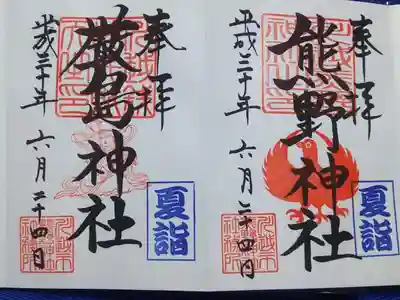 奉拝
熊野神社
平成三十年 六月二十四日
夏詣
奉拝
厳島神社
平成三十年 六月二十四日
夏詣